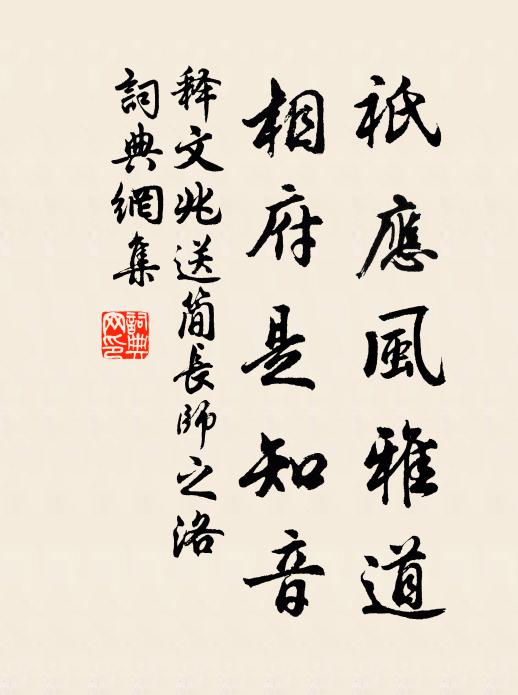 祇應風雅道
相府是知音
释文兆送简長師之洛
詞典網集
詞典網印